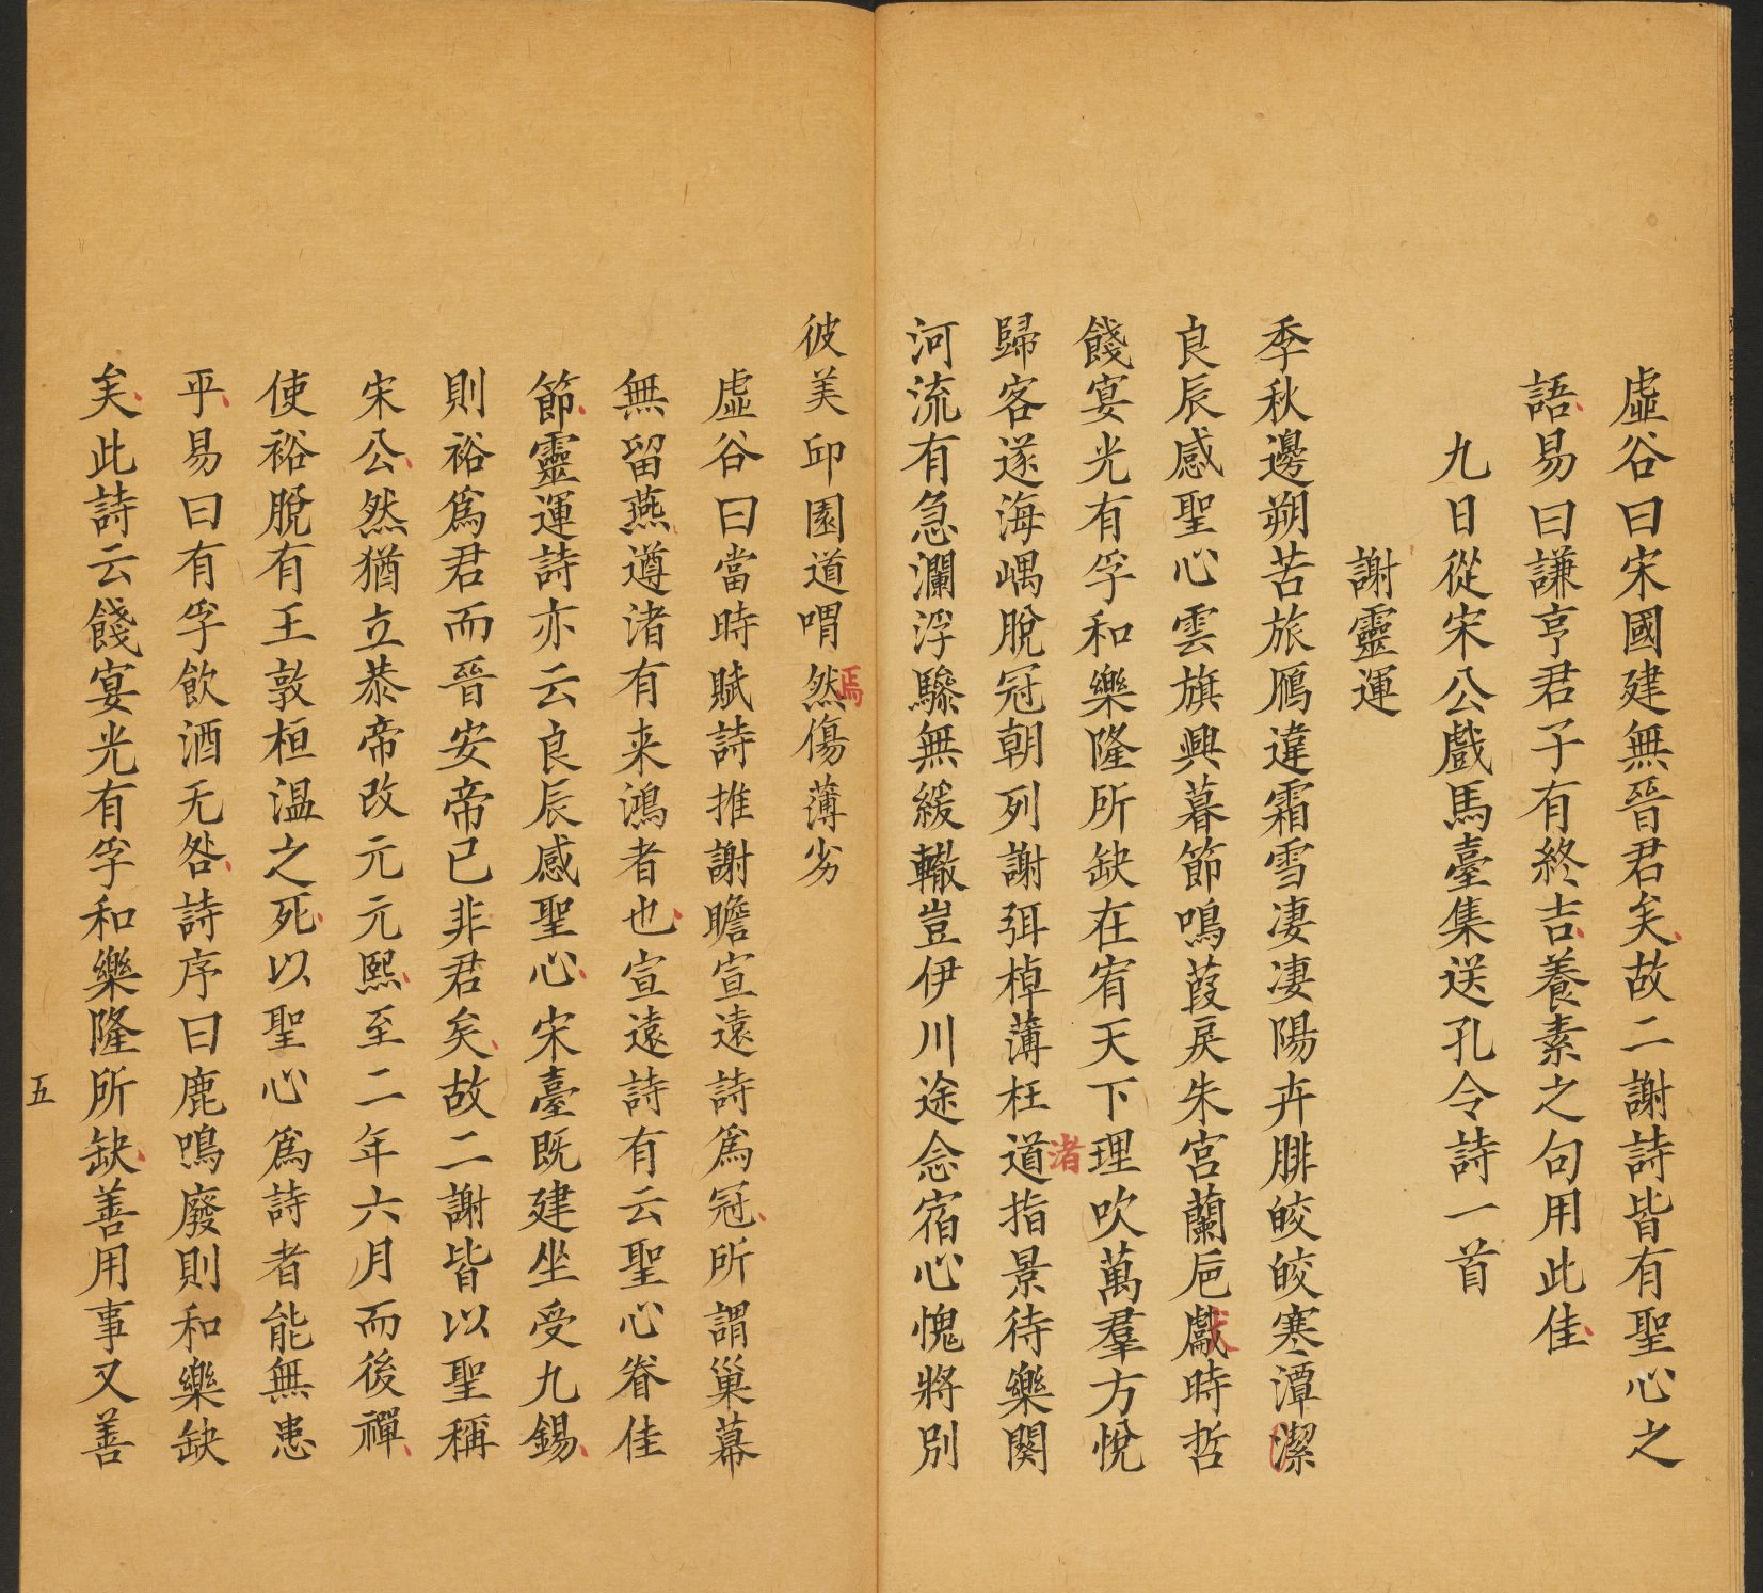 虛谷曰宋國建無晉君矣故二謝詩皆有聖心之
語易曰謙亨君子有終吉養素之句用此佳
九日從宋公戲馬臺集送孔令詩一首
謝靈運
季秋邊朔苦旅鴈違霜雪凄凄陽卉腓皎皎寒潭潔
良辰感聖心雲旗興暮節鳴葭戾朱宮蘭巵獻時哲
餞宴光有孚和樂隆所缺在宥天下理吹萬羣方悅
歸客遂海嵎脫冠謝朝列弭棹薄枉道指景待樂闋
渚
河流有急瀾浮驂無緩轍豈伊川途念宿心愧將別
彼美邱園道喟然傷薄劣
焉
虛谷曰當時賦詩推謝瞻宣遠詩爲冠所謂巢幕
無留燕遵渚有来鴻者也宣遠詩有云聖心眷佳
節靈運詩亦云良辰感聖心宋臺既建坐受九錫
則裕爲君而晉安帝已非君矣故二謝皆以聖稱
宋公然猶立恭帝改元元熙至二年六月而後禪
使裕脫有王敦桓温之死以聖心爲詩者能無患
乎易曰有孚飲酒无咎詩序曰鹿鳴廢則和樂缺
矣此詩云餞宴光有孚和樂隆所缺善用事又善
五